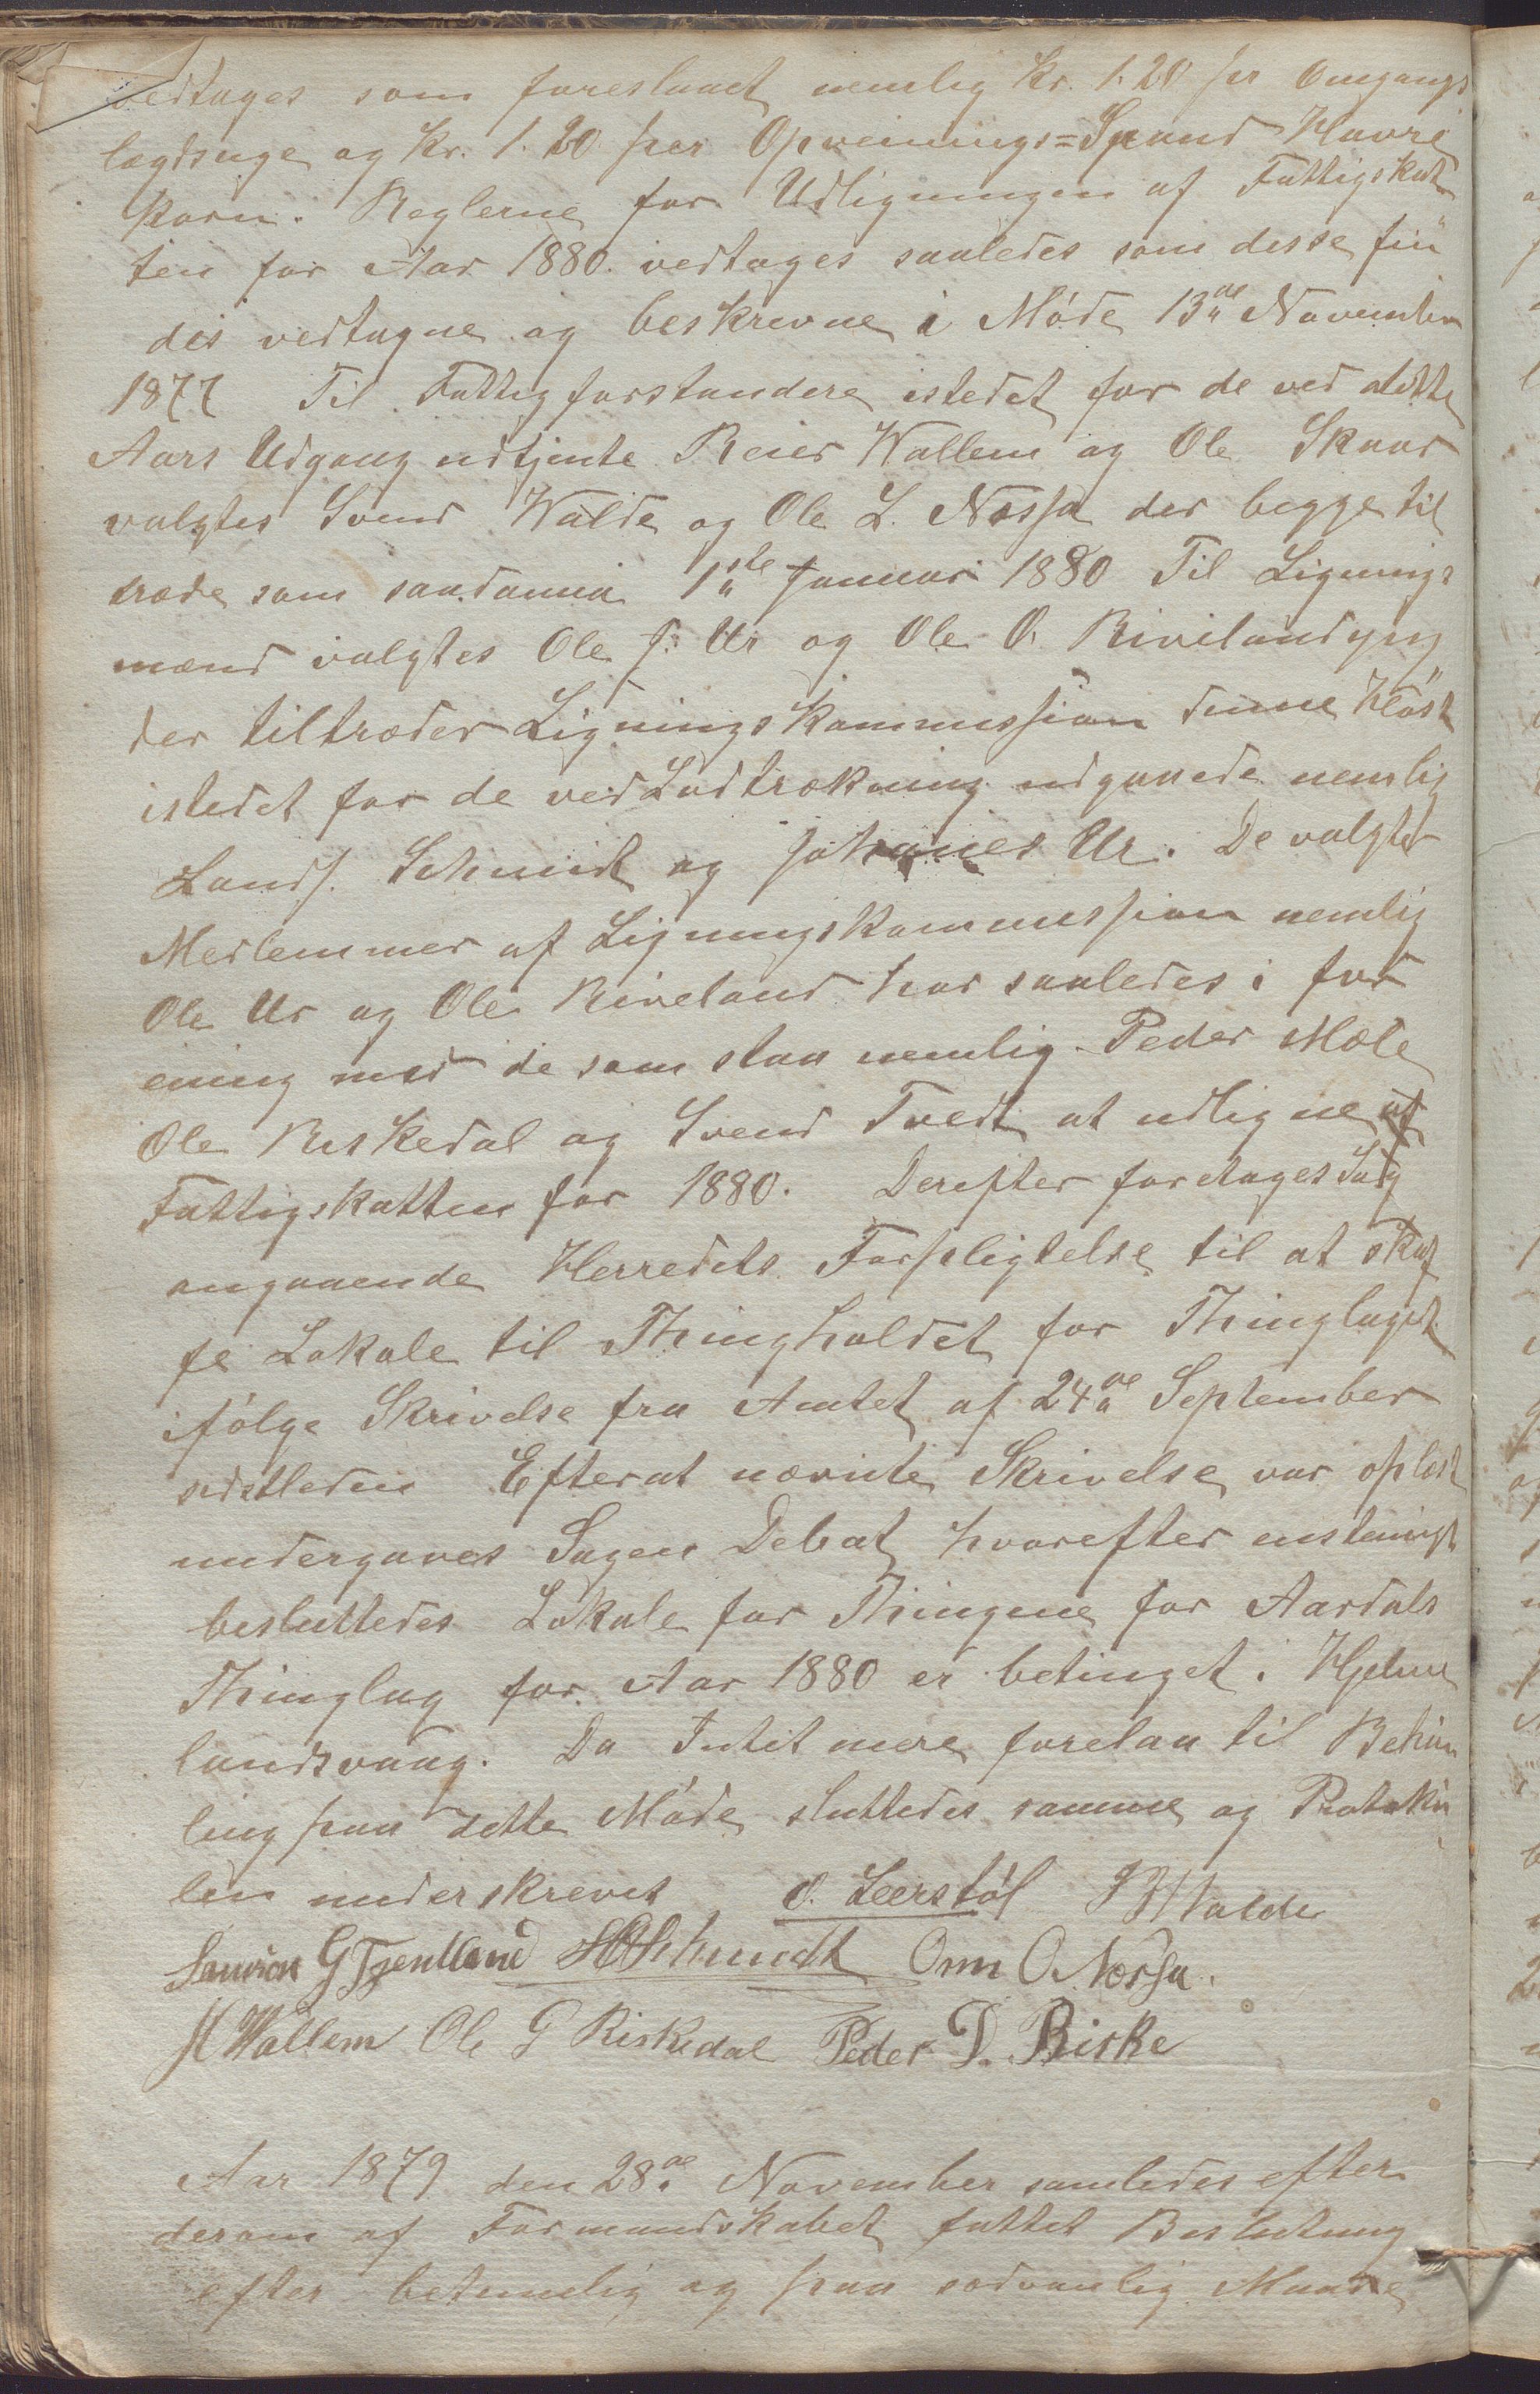 vedtages som foreslaaet nemlig Kr. 1.20 per Omgangs
lægdsuge og Kr. 1.20 per Opveinings=Spand Havre
korn. Reglerne for Udligningen af Fattigskat
ten for Aar 1880. vedtages saaledes som desse fin
des vedtagne og beskrevne i Møde 13de November
1877 Til Fattigforstandere istedet for de ved dette
Aars Udgang udtjente Reier Wallem og Ole Skaar
valgtes Svend Walde og Ole L. Nessa der begge til
træde som saadanna 1ste Januar 1880 Til Lignings
mænd valgtes Ole J. Ur og Ole O. Riveland
der tiltræder Ligningskommission denne Høst
istedet for de ved Lodtrækning udgaaede nemlig
Lands. Schmidt og Johanes Ur. De valgte
Medlemmer af Ligningskommission nemlig
Ole Ur og Ole Riveland har saaledes i for
ening med de som staa nemlig Peder Mæle
Ole Riskedal og Svend Tvedt at udligne af
Fattigskatten for 1880. Derefter foretages Sag
angaaende Herredets Forpligtelse til at skaf
fe Lokale til Thingholdet for Thinglaget
ifølge Skrivelse fra Amtet af 24de September
sidstleden Efterat nævnte Skrivelse var oplæst
undergaves Sagen Debat hvorefter enstemigt
besluttedes Lokale for Thingene for Aardals
Thinglag for Aar 1880 er betinget i Hjelme
landsvaag. Da Intet mere forelaa til Behan
ling paa dette Møde sluttedes samme og Protoko
len underskrevet O. Leerstøl S Walde
Lauritn G Tjentland Schmidt Onn O Nessa.
H Wallem Ole G Riskedal Peder D. Riske
Aar 1879 den 28de November samledes efter
derom af Formandskabet fattet Beslutning
efter betimelig og paa sædvanlig Maade